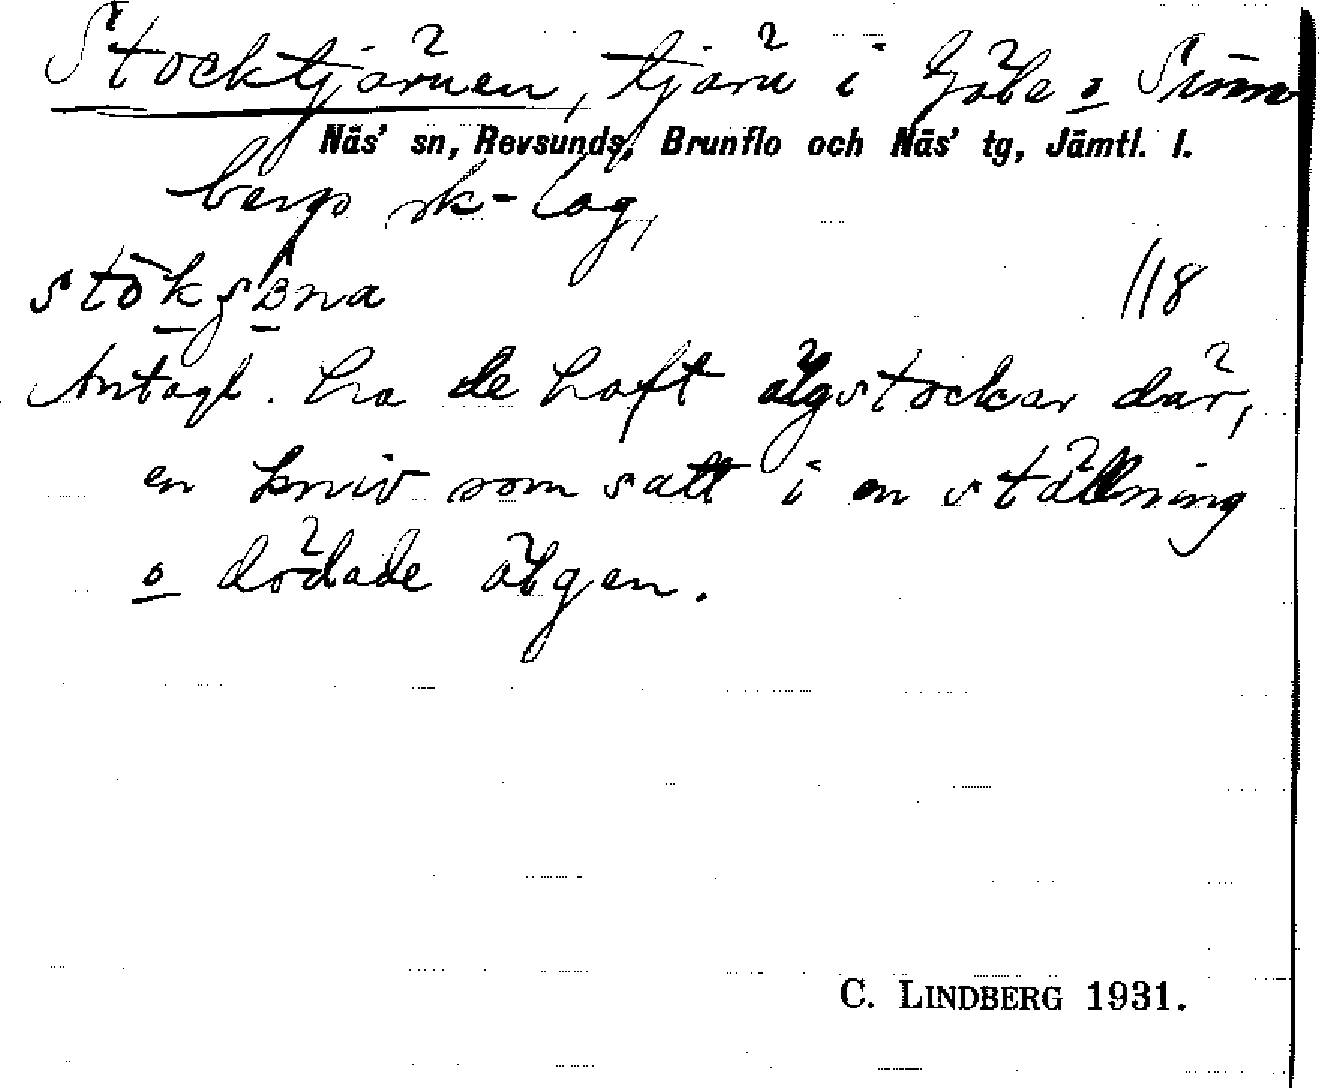 Stocktjärnen, tjärn i Gåle o Sunn
Näs' sn, Revsunds, Brunflo och Näs' tg, Jämtl. l.
bergs sk-lag,
118
Antagl. ha de haft älgstockar där,
en kniv som satt i en ställning
o dödade älgen.
C. LINDBERG 1931.